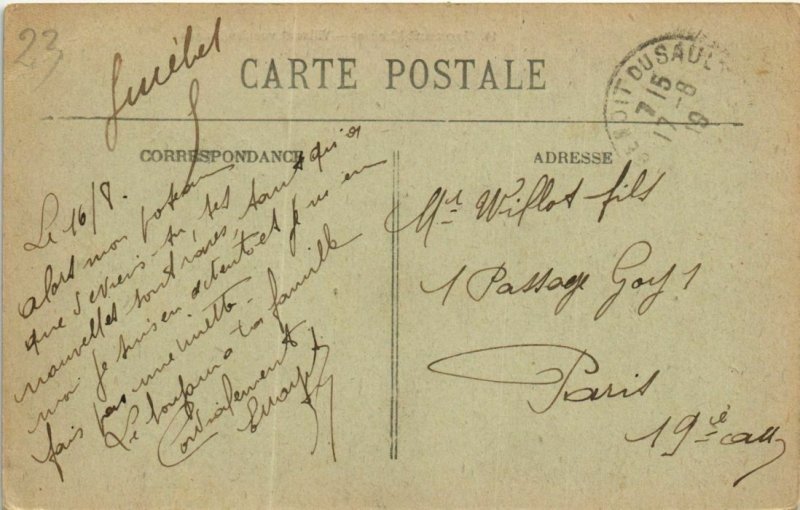 23
CARTE POSTALE
BENOIT DU SAULT
7 15
17 - 8
19
CORRESPONDANCE
ADRESSE
Le 16/8.
alors mon poteau
que deviens-tu, tes
nouvelles sont rares, tant qu'à
moi je suis en détente et je ne m'en
fais pas une miette.
Le bonjour à ta famille
Cordialement
Mr Willot fils
1 Passage Goix 1
Paris
19e